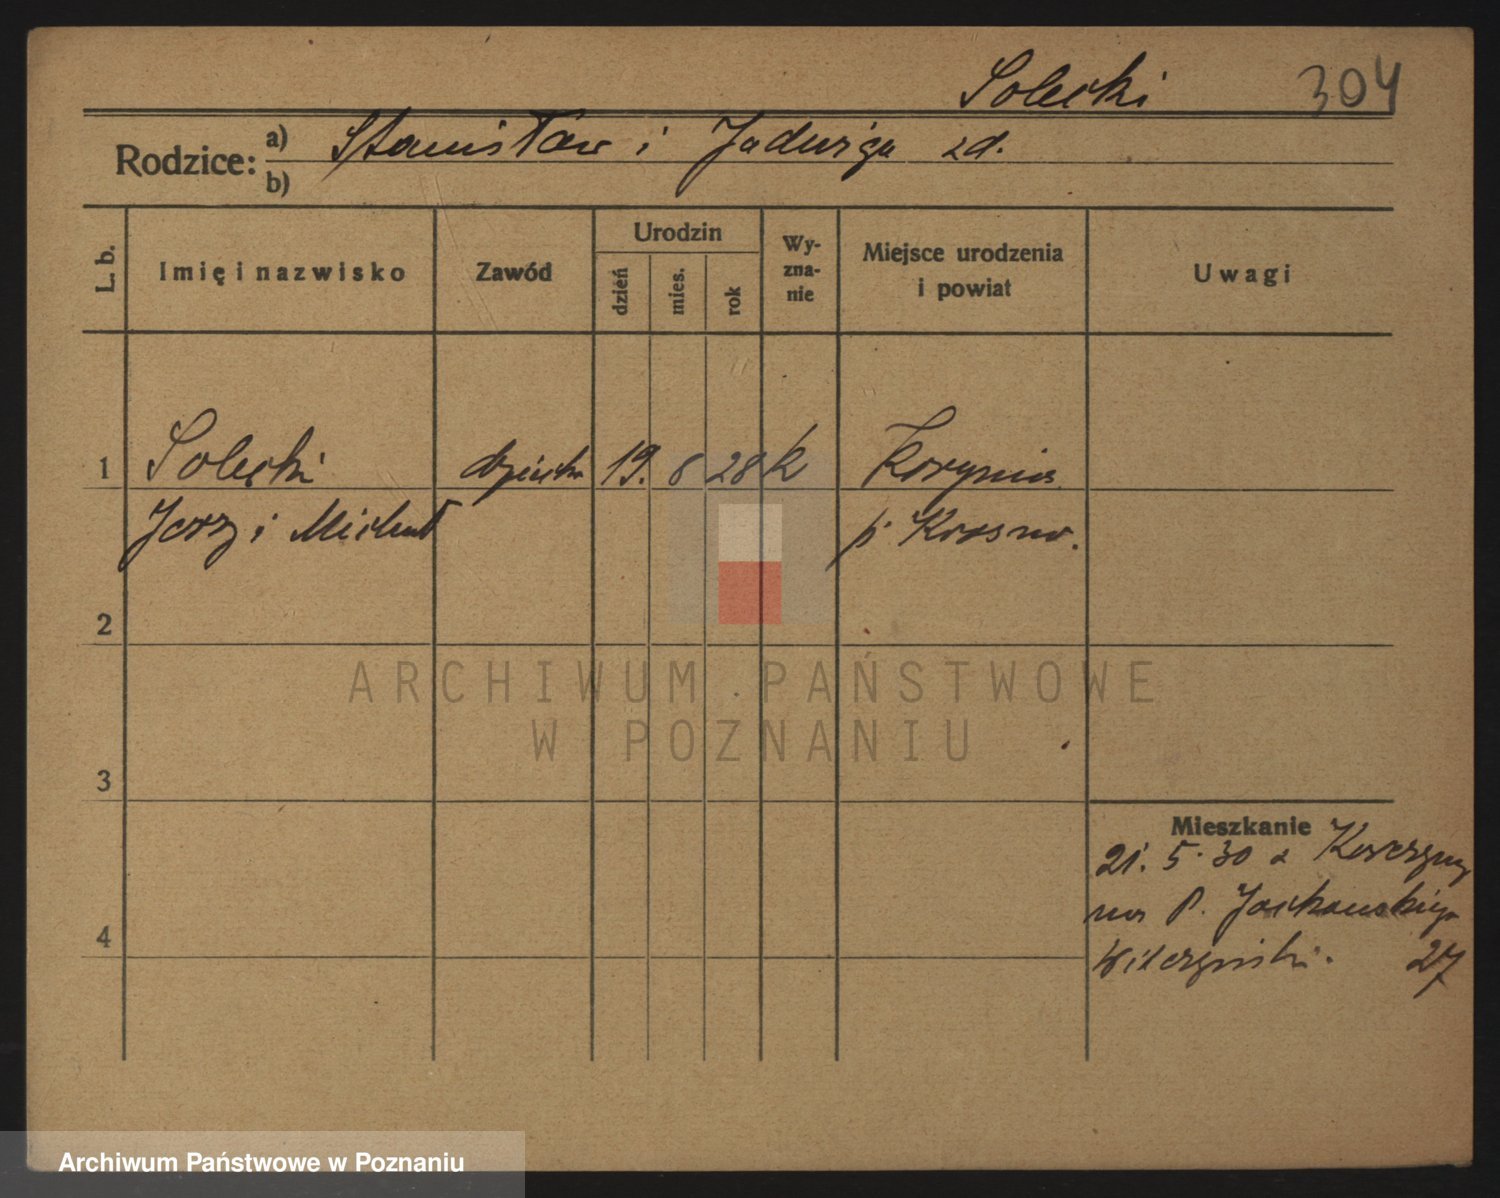 Solecki 304
Rodzice: a) Stanisław i Jadwiga zd.
b)
L. b.
Imię i nazwisko
Zawód
Urodzin
dzień
mies.
rok
Wy-
zna-
nie
Miejsce urodzenia
i powiat
Uwagi
1 Solecki dziecko 19. 8 28 k
Jerzy i Michał p. Krosno.
2
3
4
Mieszkanie
21. 5. 30 z
na P. Jackowskiego
27
ARCHIWUM PAŃSTWOWE
W POZNANIU
Archiwum Państwowe w Poznaniu